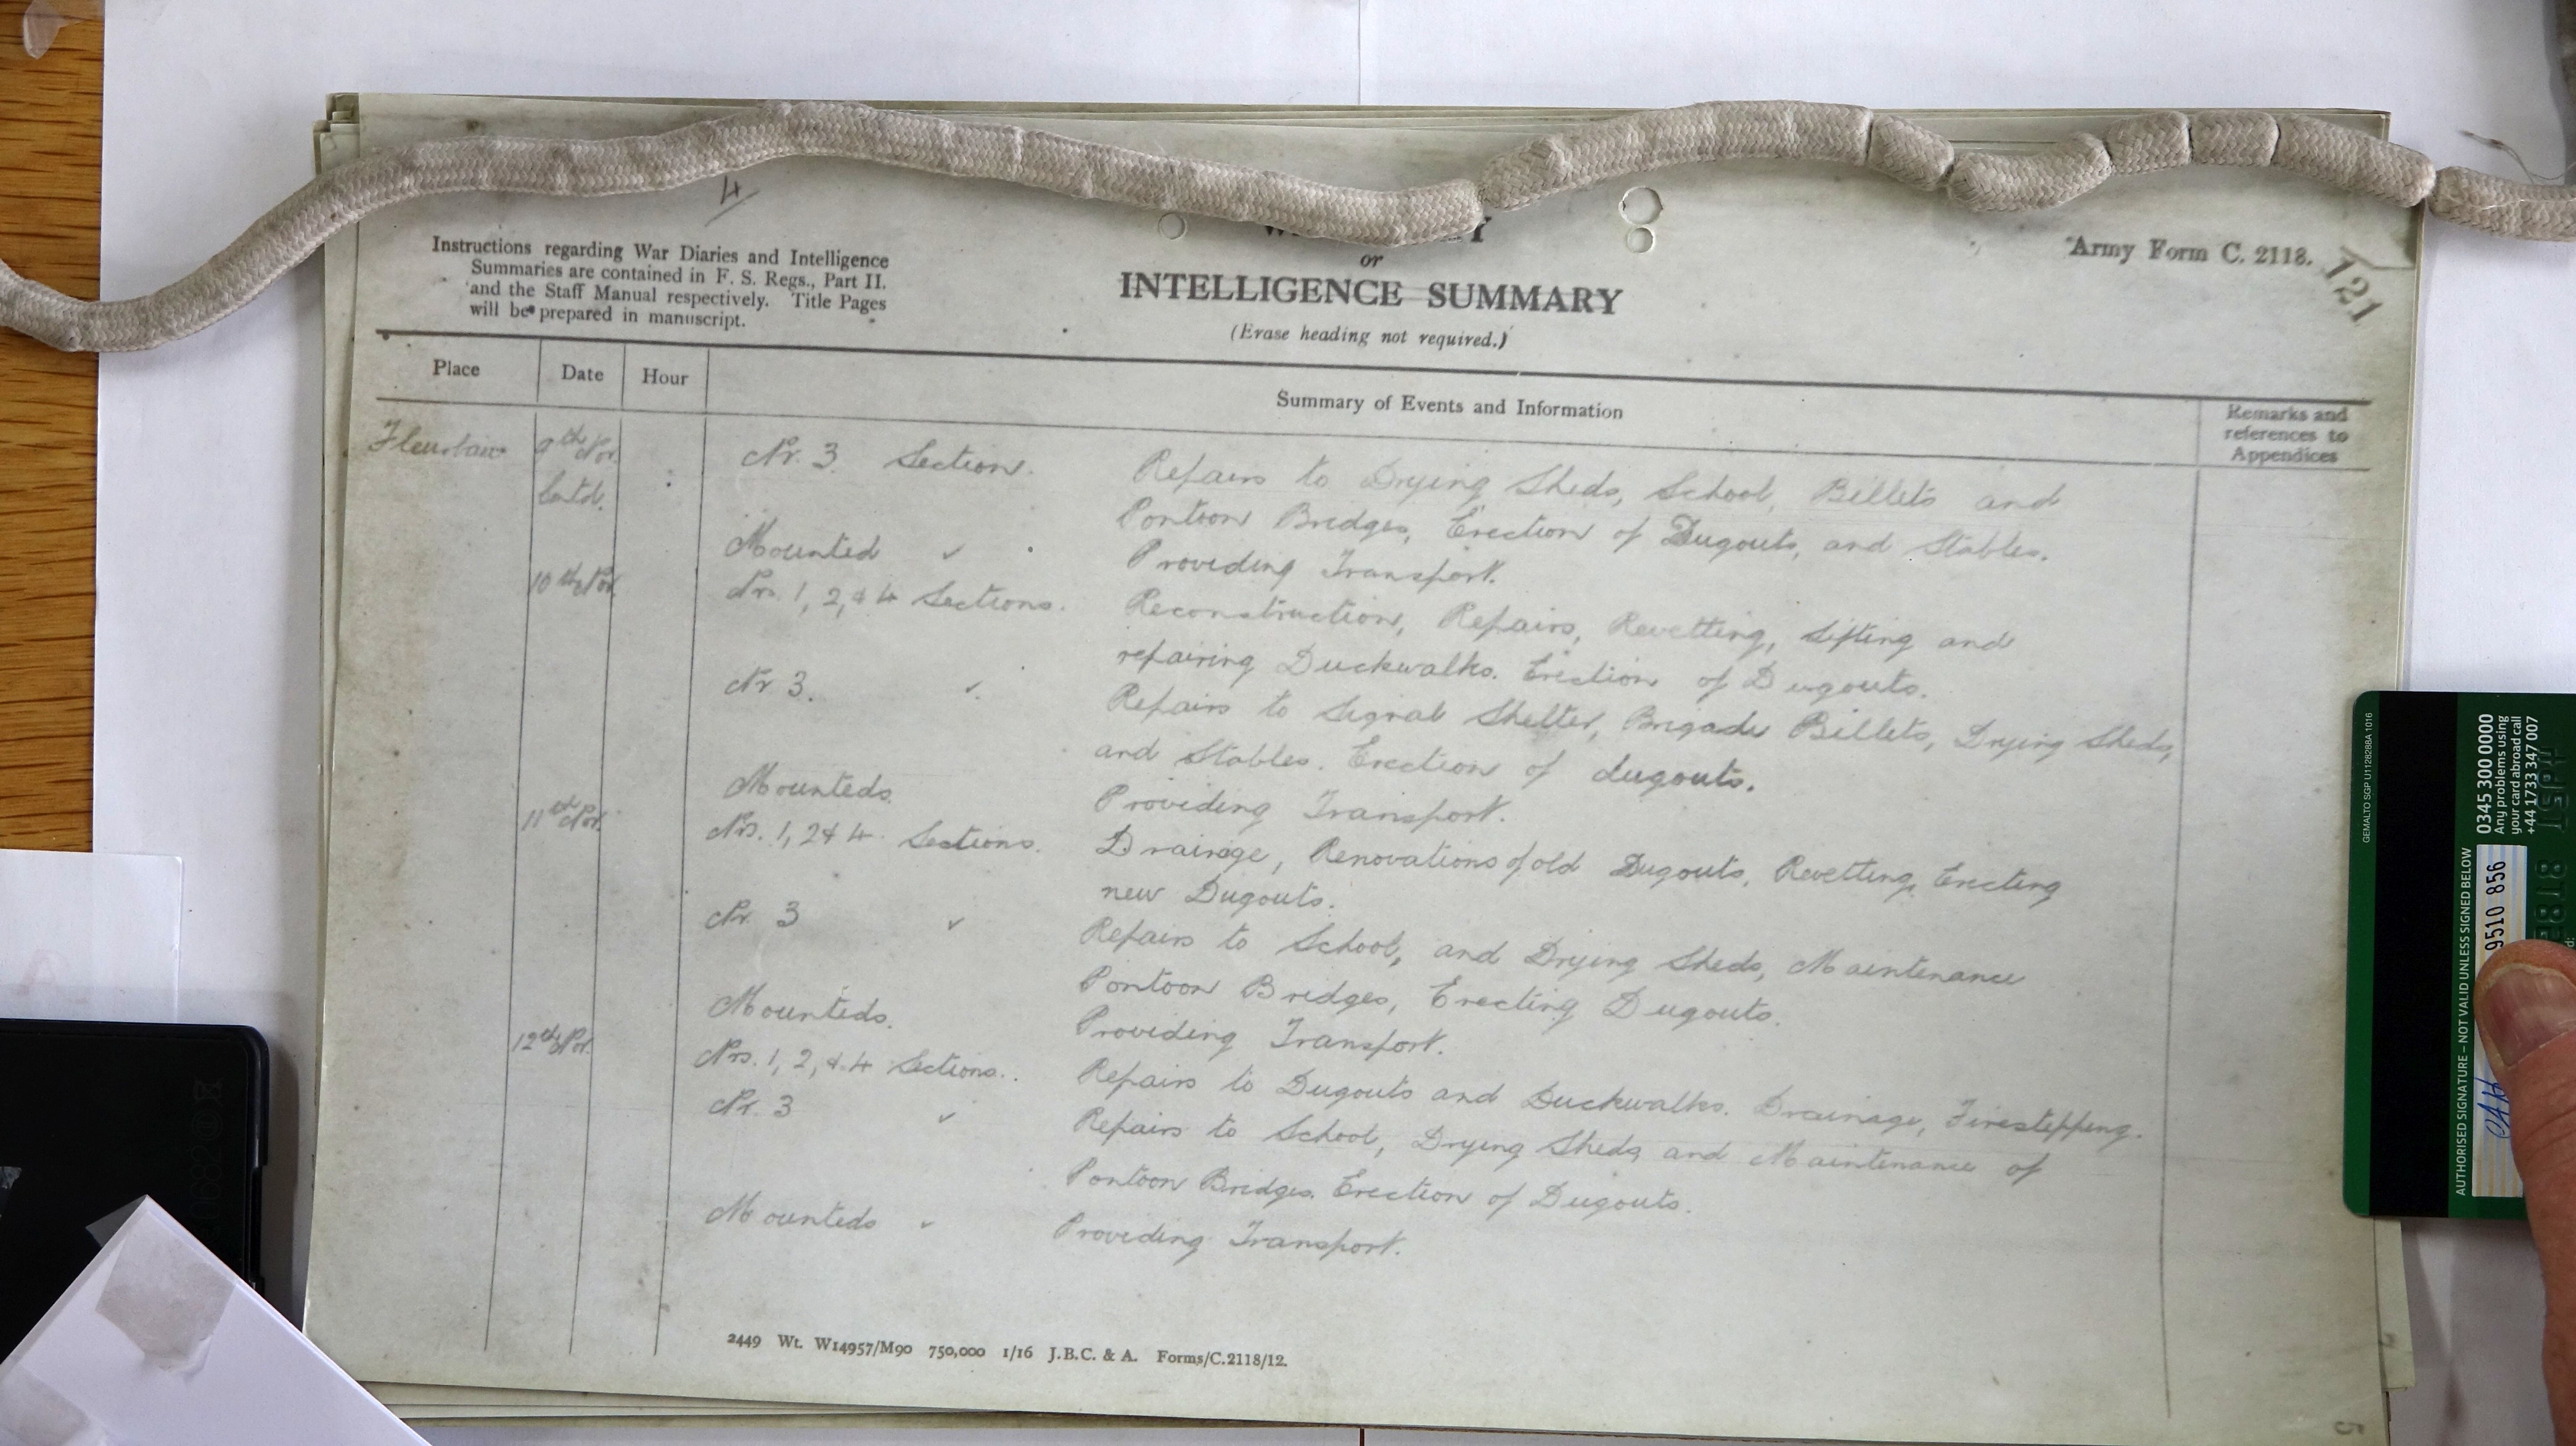 4
Instructions regarding War Diaries and Intelligence
Summaries are contained in F. S. Regs., Part II.
and the Staff Manual respectively. Title Pages
will be prepared in manuscript.
or
INTELLIGENCE SUMMARY
(Erase heading not required.)
Army Form C. 2118.
121
Place Date Hour Summary of Events and Information Remarks and references to Appendices
Fleurbaix 9th Nov. Nr. 3 Section. Repairs to Drying Sheds, School, Billets and
Contd. Pontoon Bridges, Erection of Dugouts, and Stables.
Mounted " Providing Transport.
10th Nov. Nrs. 1, 2, & 4 Sections. Reconstruction, Repairs, Revetting, Lifting and
repairing Duckwalks. Erection of Dugouts.
Nr 3. " Repairs to Signal Shelter, Brigade Billets, Drying Sheds,
and Stables. Erection of dugouts.
Mounteds. Providing Transport.
11th Nov. Nrs. 1, 2 & 4 Sections. Drainage, Renovations of old Dugouts, Revetting, Erecting
new Dugouts.
Nr. 3 " Repairs to School, and Drying Sheds, Maintenance
Pontoon Bridges, Erecting Dugouts.
Mounteds. Providing Transport.
12th Nov. Nrs. 1, 2, & 4 Sections. Repairs to Dugouts and Duckwalks. Drainage, Firestepping.
Nr. 3 " Repairs to School, Drying Sheds, and Maintenance of
Pontoon Bridges. Erection of Dugouts.
Mounteds " Providing Transport.
2449 Wt. W14957/M90 750,000 1/16 J.B.C. & A. Forms/C.2118/12.
5
GEMALTO SGP U1128288A 1016
0345 300 0000
Any problems using
your card abroad call
+44 1733 347 007
AUTHORISED SIGNATURE – NOT VALID UNLESS SIGNED BELOW
9510 856